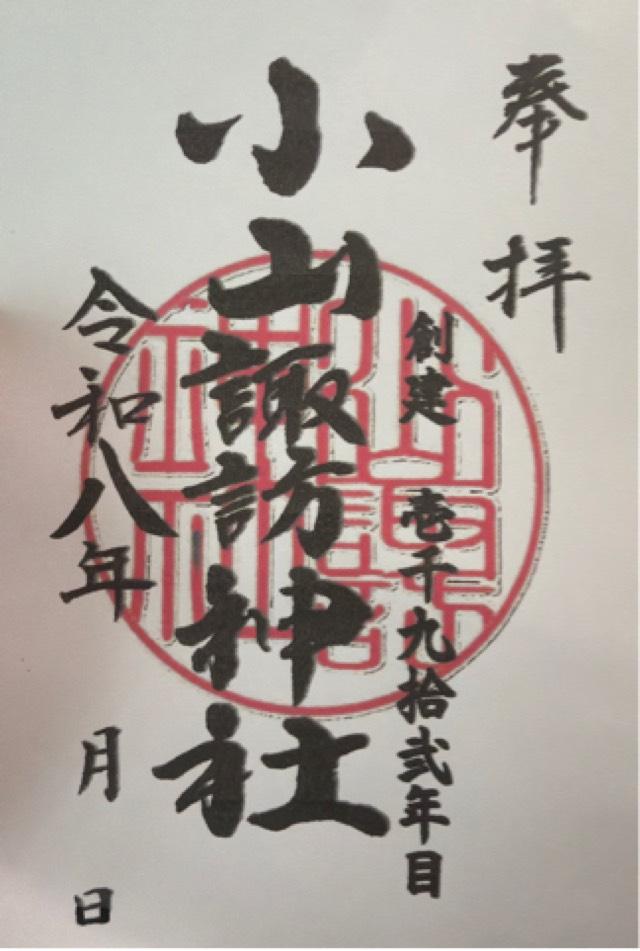 奉拝
創建 壱千九拾弐年目
小山諏訪神社
令和八年 月 日